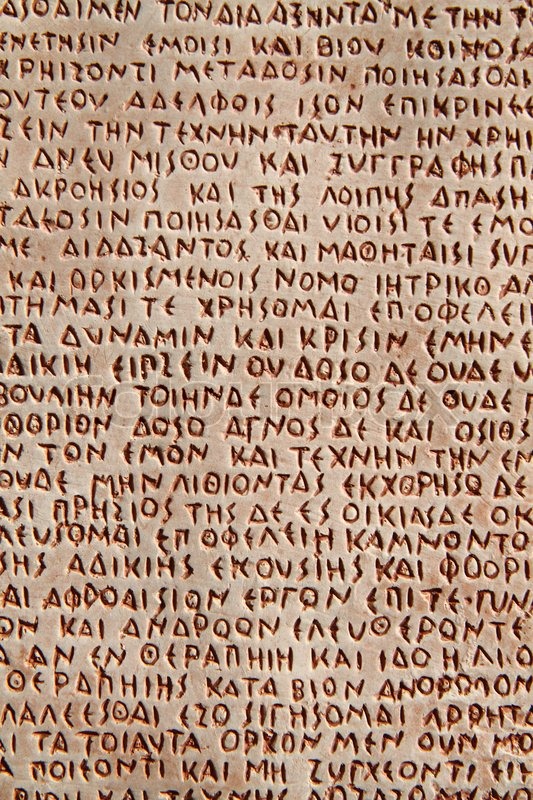 ΑΣΟΔΙΜΕΝ ΤΟΝ ΔΙΔΑΞΗΝΤΑ ΜΕ ΤΗΝ Τ
ΕΝΕΤΗΣΙΝ ΕΜΟΙΣΙ ΚΑΙ ΒΙΟΥ ΚΟΙΝΟΣΑ
ΧΡΗΙΖΟΝΤΙ ΜΕΤΑΔΟΣΙΝ ΠΟΙΗΣΑΣΟΔΙ
ΟΥΤΕΟΥ ΑΔΕΛΦΟΙΣ ΙΣΟΝ ΕΠΙΚΡΙΝΕΕ
ΞΕΙΝ ΤΗΝ ΤΕΧΝΗΝ ΤΑΥΤΗΝ ΗΝ ΧΡΗΙ
Ν ΑΝΕΥ ΜΙΣΘΟΥ ΚΑΙ ΞΥΓΓΡΑΦΗΣ ΠΑ
ΑΚΡΟΗΣΙΟΣ ΚΑΙ ΤΗΣ ΛΟΙΠΗΣ ΑΠΑΣΗ
ΤΑΔΟΣΙΝ ΠΟΙΗΣΑΣΘΑΙ ΥΙΟΙΣΙ ΤΕ ΕΜΟ
ΜΕ ΔΙΔΑΞΑΝΤΟΣ ΚΑΙ ΜΑΘΗΤΑΙΣΙ ΣΥΓ
ΚΑΙ ΟΡΚΙΣΜΕΝΟΙΣ ΝΟΜΟ ΙΗΤΡΙΚΟ ΑΛ
ΙΤΗΜΑΣΙ ΤΕ ΧΡΗΣΟΜΑΙ ΕΠΟΦΕΛΕΙ
ΤΑ ΔΥΝΑΜΙΝ ΚΑΙ ΚΡΙΣΙΝ ΕΜΗΝ Ε
ΔΙΚΙΗ ΕΙΡΞΕΙΝ ΟΥ ΔΟΣΟ ΔΕ ΟΥΔΕ
ΒΟΥΛΙΗΝ ΤΟΙΗΝΔΕ ΟΜΟΙΟΣ ΔΕ ΟΥΔΕ
ΦΘΟΡΙΟΝ ΔΟΣΟ ΑΓΝΟΣ ΔΕ ΚΑΙ ΟΣΙΟΣ
Ν ΤΟΝ ΕΜΟΝ ΚΑΙ ΤΕΧΝΗΝ ΤΗΝ ΕΜ
ΟΥΔΕ ΜΗΝ ΛΙΘΙΟΝΤΑΣ ΕΚΧΟΡΗΣΟ ΔΕ
ΑΣΙ ΠΡΗΞΙΟΣ ΤΗΣ ΔΕ ΕΣ ΟΙΚΙΑΣ ΔΕ ΟΚ
ΛΕΥΣΟΜΑΙ ΕΠ ΟΦΕΛΕΙΗ ΚΑΜΝΟΝΤΟ
ΣΗΣ ΑΔΙΚΙΗΣ ΕΚΟΥΣΙΗΣ ΚΑΙ ΦΘΟΡΙ
ΑΙ ΑΦΡΟΔΙΣΙΟΝ ΕΡΓΟΝ ΕΠΙ ΤΕ ΓΥΝ
ΟΝ ΚΑΙ ΑΝΔΡΟΟΝ ΕΛΕΥΘΕΡΟΝ ΤΕ
ΑΝ ΕΝ ΘΕΡΑΠΗΙΗ ΚΑΙ ΙΔΟ Η
ΘΕΡΑΠΗΙΗΣ ΚΑΤΑ ΒΙΟΝ ΑΝΘΡΟΠΟΝ
ΛΑΛΕΕΣΘΑΙ ΕΞΟ ΣΙΓΗΣΟΜΑΙ ΑΡΡΗΤΑ
ΑΙ ΤΑ ΤΟΙΑΥΤΑ ΟΡΚΟΝ ΜΕΝ ΟΥΝ ΜΟ
Α ΠΟΙΕΟΝΤΙ ΚΑΙ ΜΗ ΞΥΓΧΕΟΝΤΙ ΕΙΗ